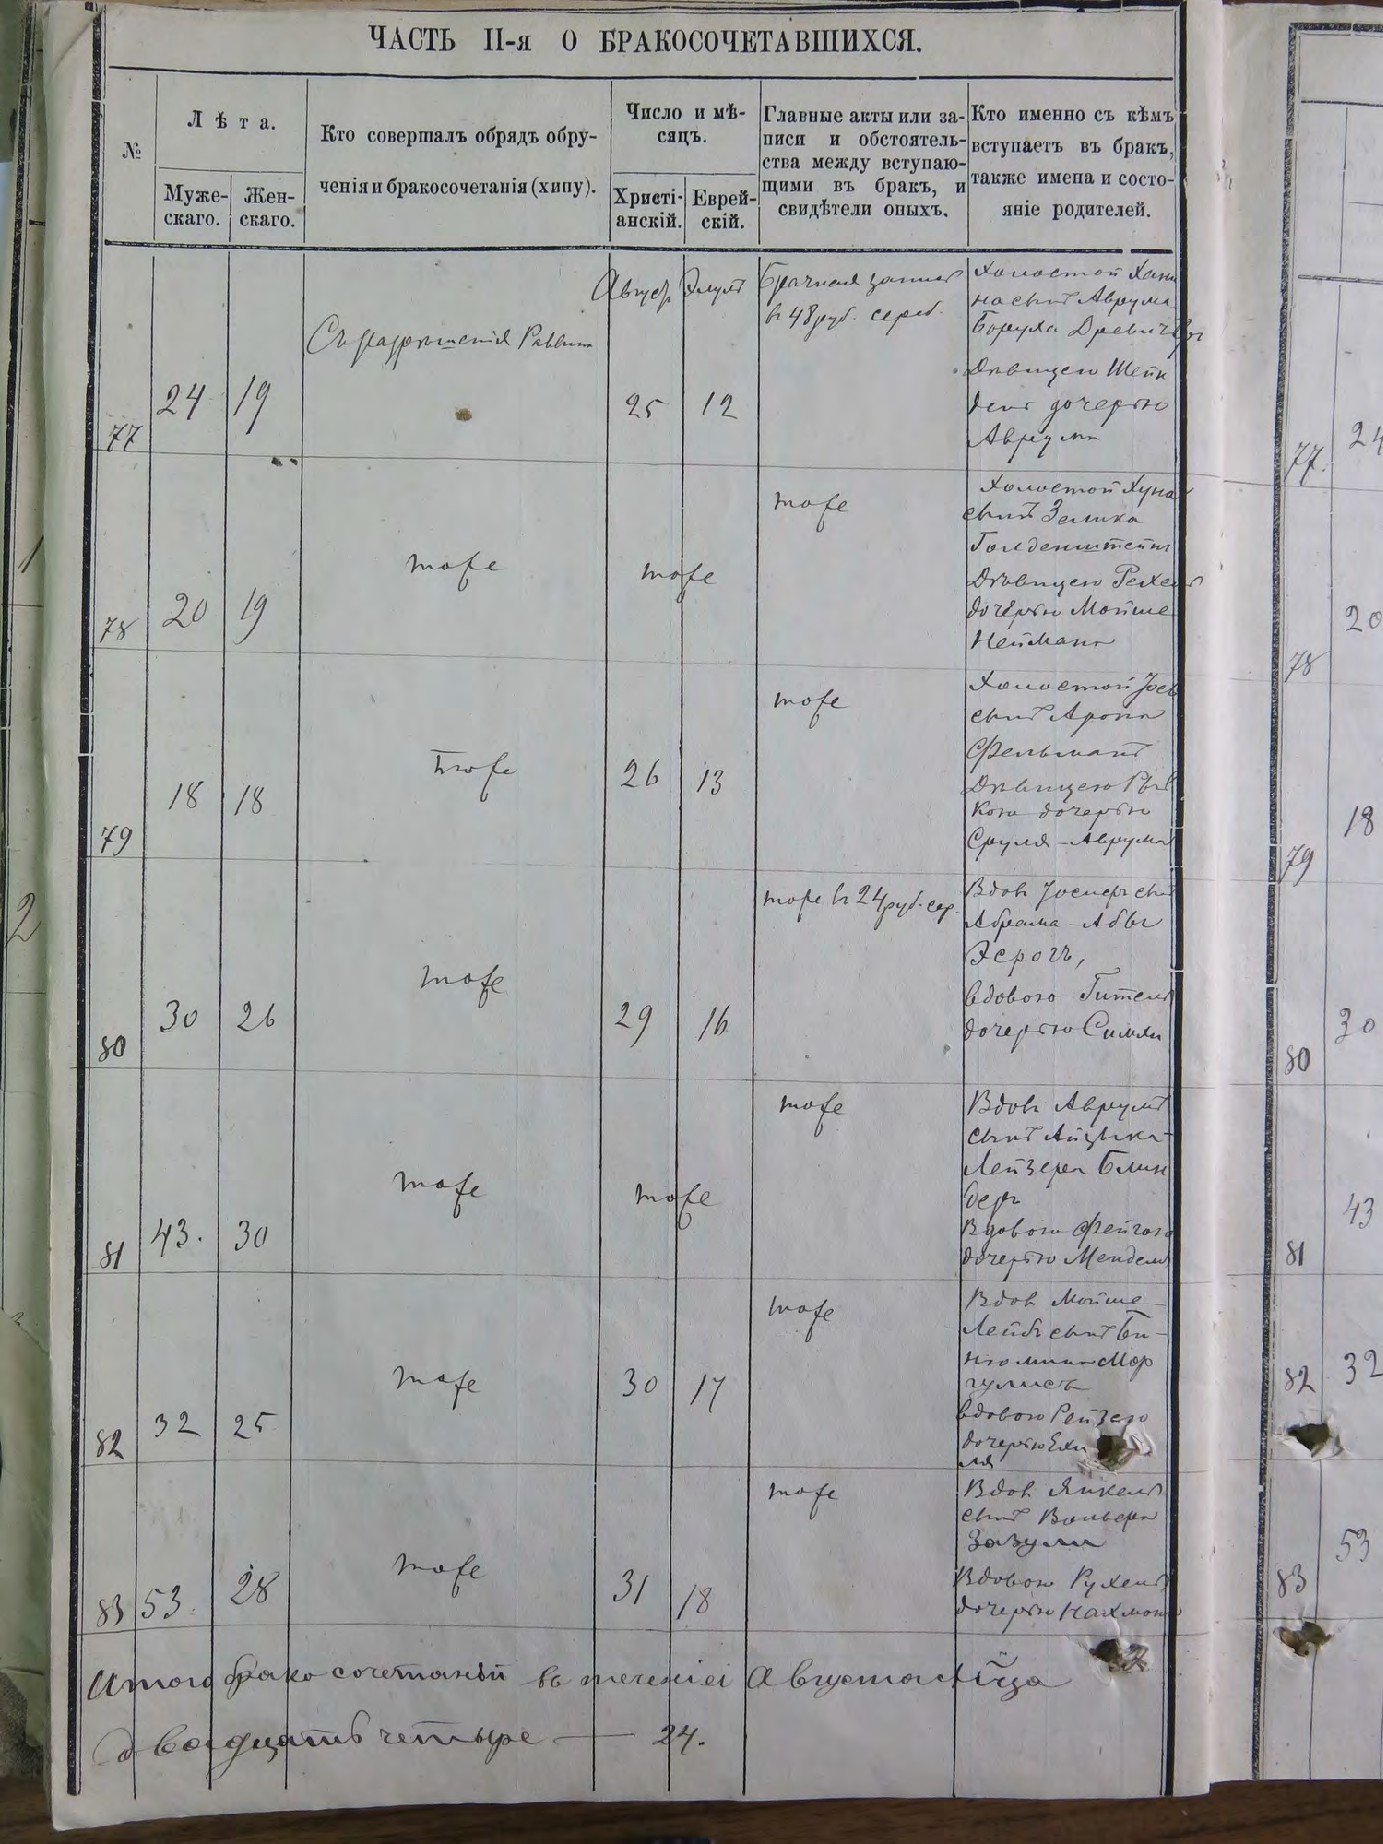 ЧАСТЬ II-я О БРАКОСОЧЕТАВШИХСЯ.
№
Лѣта.
Муже-
скаго.
Жен-
скаго.
Кто совершалъ обрядъ обру-
ченія и бракосочетанія (хипу).
Число и мѣ-
сяцъ.
Христі-
анскій.
Еврей-
скій.
Главные акты или за-
писи и обстоятель-
ства между вступаю-
щими въ бракъ, и
свидѣтели оныхъ.
Кто именно съ кѣмъ
вступаетъ въ бракъ,
также имена и состо-
яніе родителей.
77
24
19
Съ разрешенія Раввин
Август Элулъ
25
12
Брачная запись
в 48 руб. сереб.
Холостой Хаи
на сынъ Аврума
Боруха
Дѣвицею Шейн
дочерью
Аврума
78
20
19
тоже
тоже
тоже
Холостой Хуна
сынъ Зелика
Голденштейн
Дѣвицею Рехел
дочерью Мойше
Неймана
79
18
18
тоже
26
13
тоже
Холостой Иос
сынъ Арона
Фельманъ
Дѣвицею Рыв
кою дочерью
Сруля-Аврума
80
30
26
тоже
29
16
тоже в 24 руб. сер.
Вдов Иосифъ сын
Абрама-Абы
Эсрогъ,
вдовою Гитель
дочерью Симхи
81
43.
30
тоже
тоже
тоже
Вдовъ Аврумъ
сынъ Айзика-
Лейзера Блин
дер
Вдовою Фейгою
дочерью Мендель
82
32
25
тоже
30
17
тоже
Вдов Мойше-
Лейбъ сынъ Би-
ньомина Мар
гулисъ
вдовою Рейзею
дочерью Ехи
ля
83
53
28
тоже
31
18
тоже
Вдов Янкель
сынъ Вольфа
Зозули
Вдовою Рухель
дочерью Нахмана
Итого бракосочетаній въ теченіи Августа м-ца
двадцать четыре — 24.
77.
24
78
20
79
18
80
30
81
43
82
32
83
53
1
2